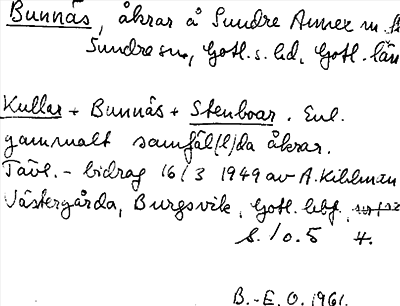 Bunnäs, åkrar å Sundre Annex m. fl
Sundre sn, Gotl. s. hd, Gotl. län
Kullar + Bunnäs + Stenboar. Enl.
gammalt samfäl(l)da åkrar.
Tävl.-bidrag 16/3 1949 av A. Kihlman
Västergårda, Burgsvik, Gotl. lbf.
s. 10. 5 4.
B.-E. O. 1961.